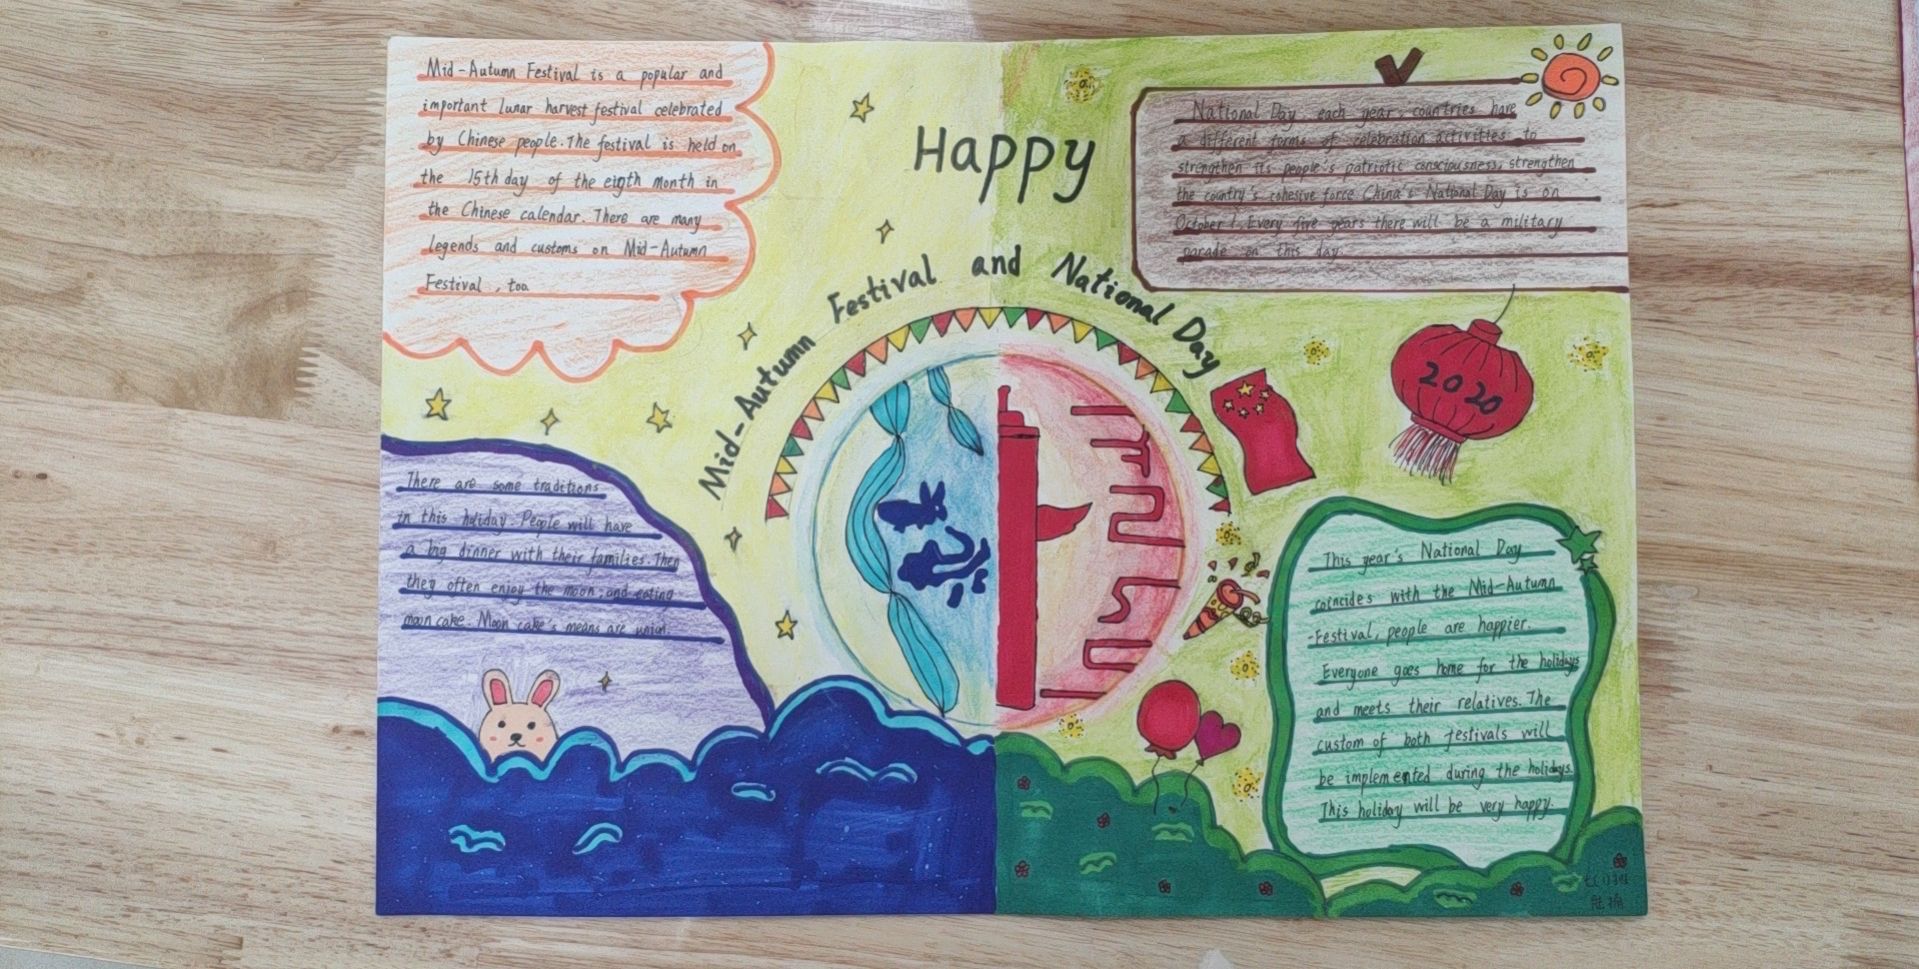 Mid-Autumn Festival is a popular and
important lunar harvest festival celebrated
by Chinese people. The festival is held on
the 15th day of the eigth month in
the Chinese calendar. There are many
legends and customs on Mid-Autumn
Festival, too.
Happy
Mid-Autumn Festival and National Day
National Day each year, countries have
a different forms of celebration activities to
strengthen its people's patriotic consciousness, strengthen
the country's cohesive force China's National Day is on
October 1. Every five years there will be a military
parade on this day.
2020
There are some traditions
in this holiday. People will have
a big dinner with their families. Then
they often enjoy the moon, and eating
moon cake. Moon cake's means are union.
This year's National Day
coincides with the Mid-Autumn
-Festival, people are happier.
Everyone goes home for the holidays
and meets their relatives. The
custom of both festivals will
be implemented during the holidays.
This holiday will be very happy.
七(1)班